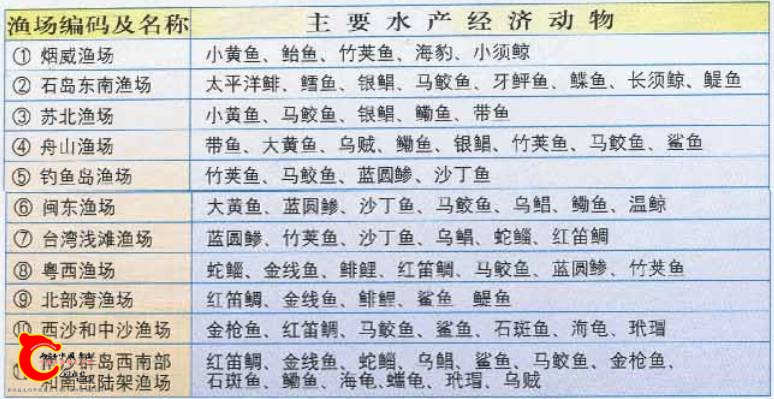 渔场编码及名称 主要水产经济动物
① 烟威渔场 小黄鱼、鲐鱼、竹荚鱼、海豹、小须鲸
② 石岛东南渔场 太平洋鲱、鳕鱼、银鲳、马鲛鱼、牙鲆鱼、鲽鱼、长须鲸、鳀鱼
③ 苏北渔场 小黄鱼、马鲛鱼、银鲳、鳓鱼、带鱼
④ 舟山渔场 带鱼、大黄鱼、乌贼、鳓鱼、银鲳、竹荚鱼、马鲛鱼、鲨鱼
⑤ 钓鱼岛渔场 竹荚鱼、马鲛鱼、蓝圆鲹、沙丁鱼
⑥ 闽东渔场 大黄鱼、蓝圆鲹、沙丁鱼、马鲛鱼、乌鲳、鳓鱼、温鲸
⑦ 台湾浅滩渔场 蓝圆鲹、竹荚鱼、沙丁鱼、乌鲳、蛇鲻、红笛鲷
⑧ 粤西渔场 蛇鲻、金线鱼、鲱鲤、红笛鲷、马鲛鱼、蓝圆鲹、竹荚鱼
⑨ 北部湾渔场 红笛鲷、金线鱼、鲱鲤、鲨鱼 鳀鱼
⑩ 西沙和中沙渔场 金枪鱼、红笛鲷、马鲛鱼、鲨鱼、石斑鱼、海龟、玳瑁
南沙群岛西南部 红笛鲷、金线鱼、蛇鲻、乌鲳、鲨鱼、马鲛鱼、金枪鱼、
和南部陆架渔场 石斑鱼、鳓鱼、海龟、蠵龟、玳瑁、乌贼